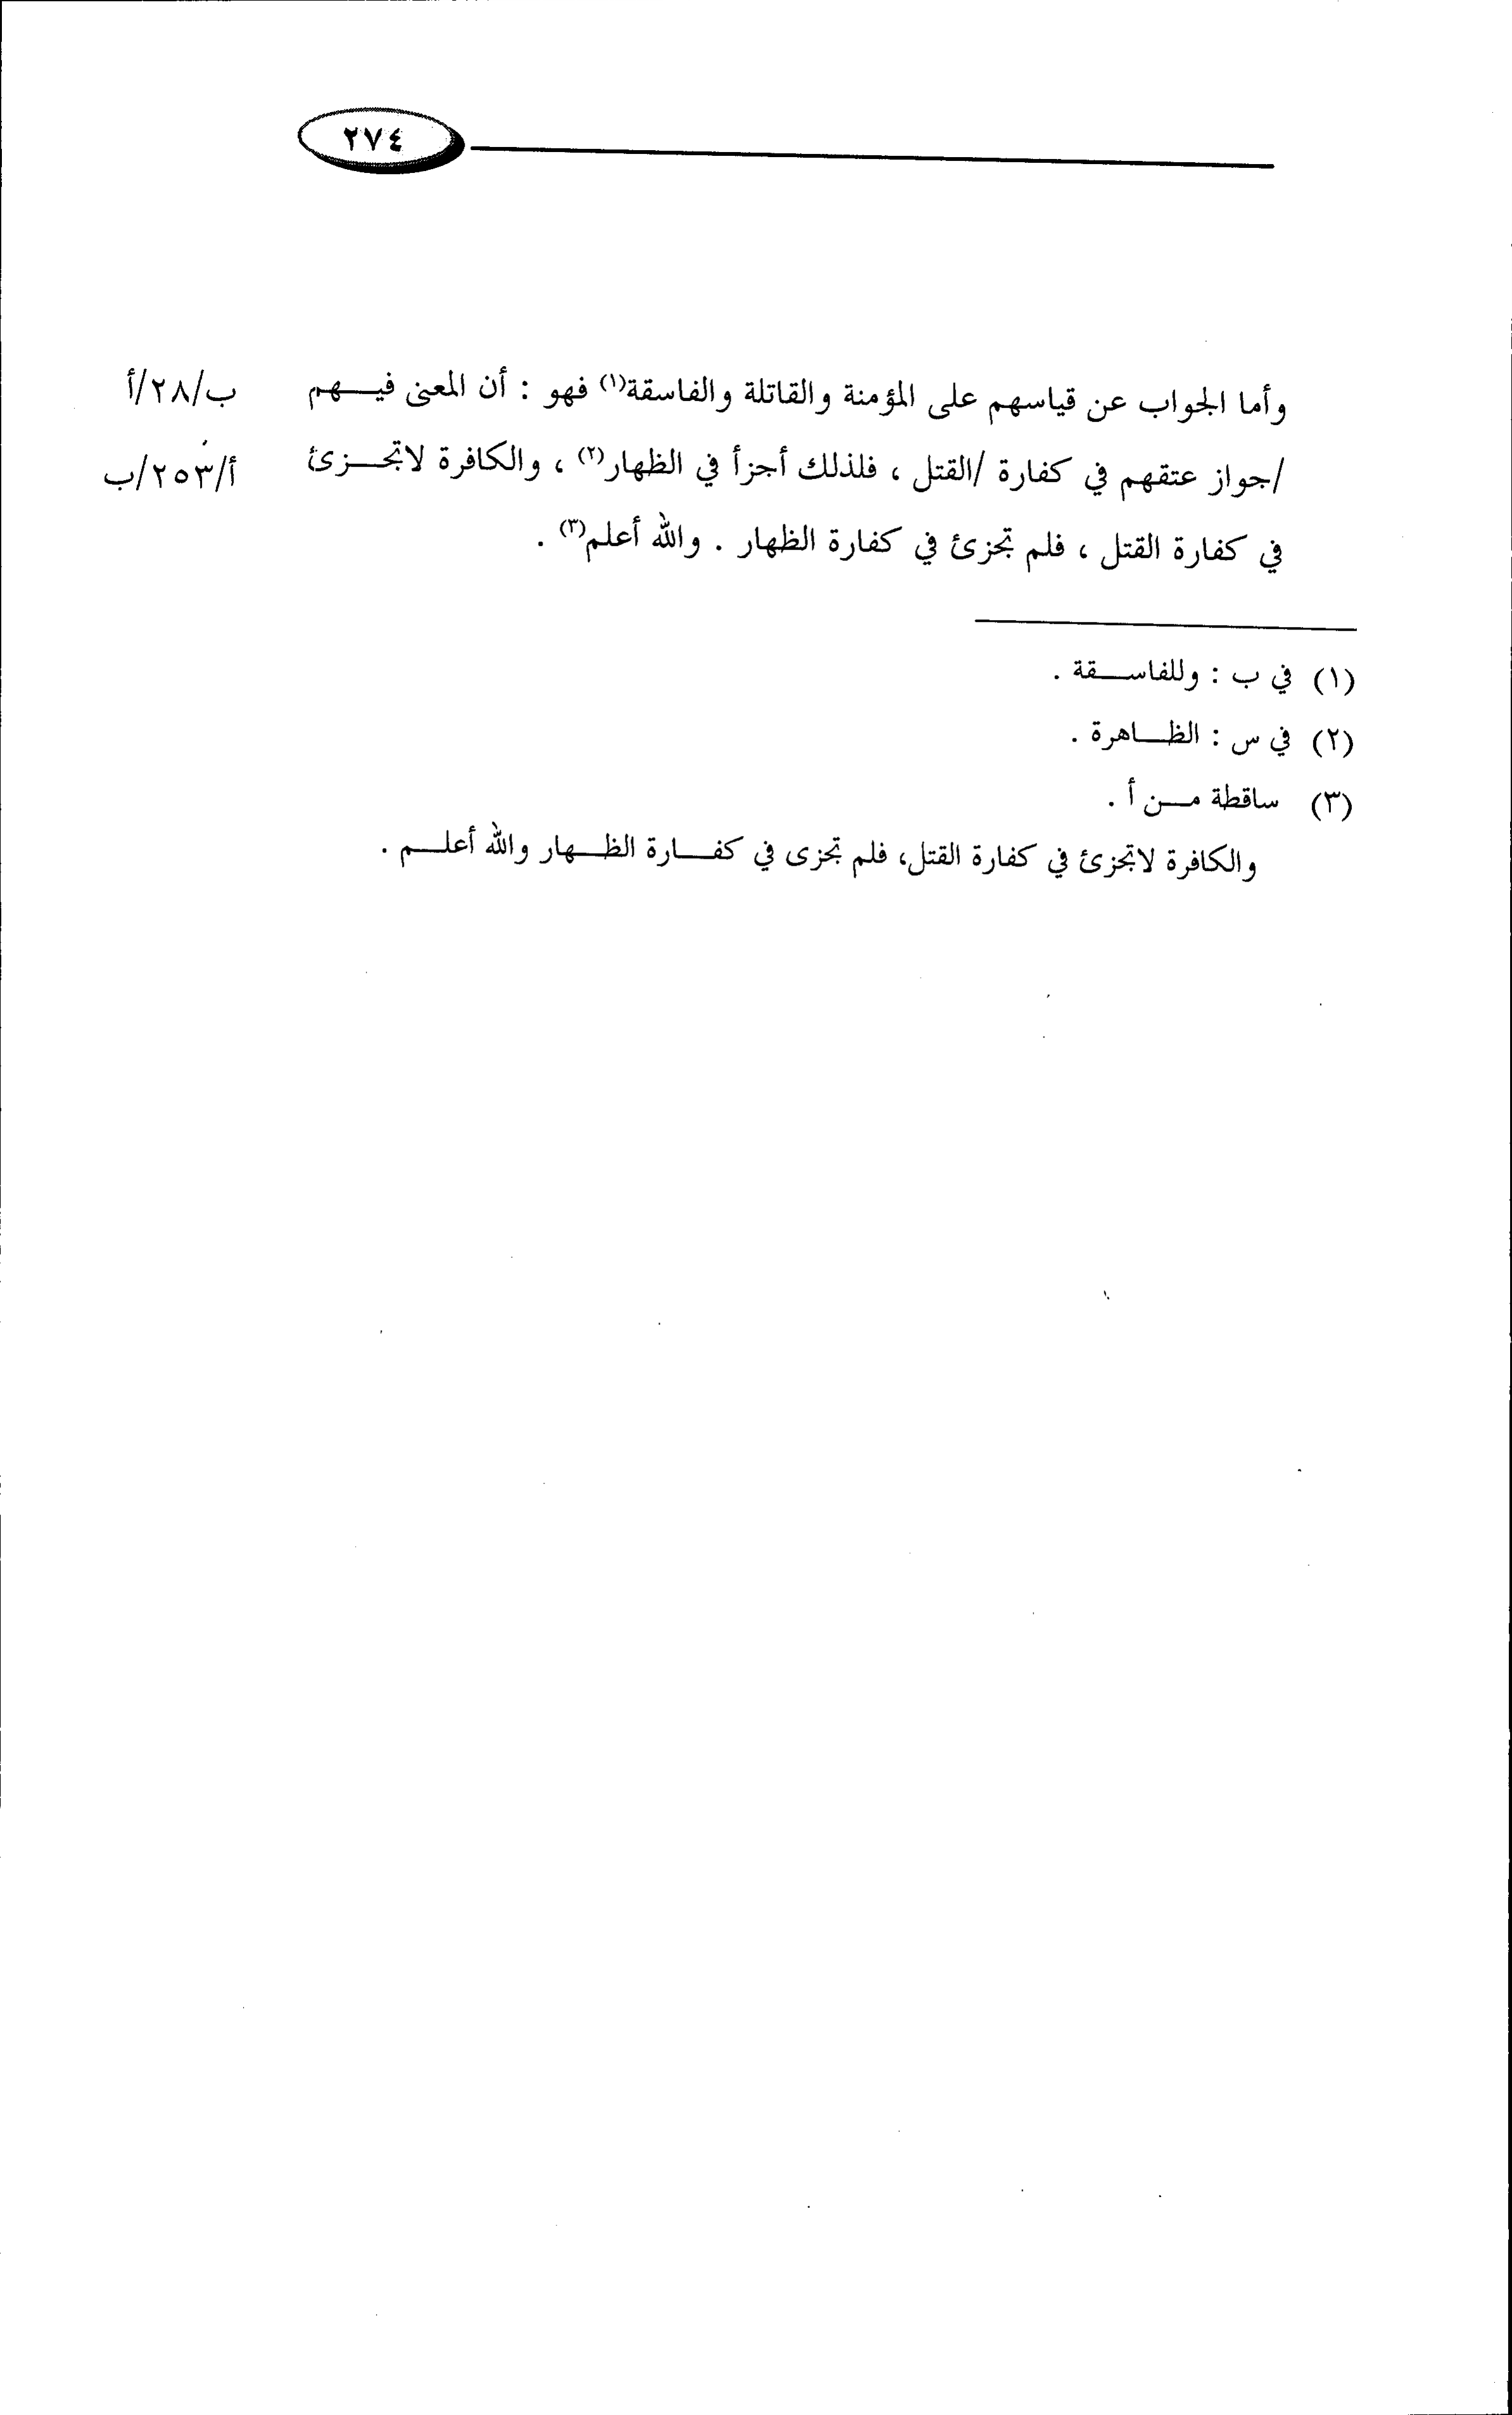 ٢٧٤
وأما الجواب عن قياسهم على المؤمنة والقاتلة والفاسقة(١) فهو : أن المعنى فيهم
ب/٢٨/أ
/جواز عتقهم في كفارة /القتل ، فلذلك أجزأ في الظهار(٢) ، والكافرة لاتجزئ
أ/٢٥٣/ب
في كفارة القتل ، فلم تجزئ في كفارة الظهار . والله أعلم(٣) .
(١) في ب : وللفاسقة .
(٢) في س : الظاهرة .
(٣) ساقطة من أ .
والكافرة لاتجزئ في كفارة القتل، فلم تجزى في كفارة الظهار والله أعلم .